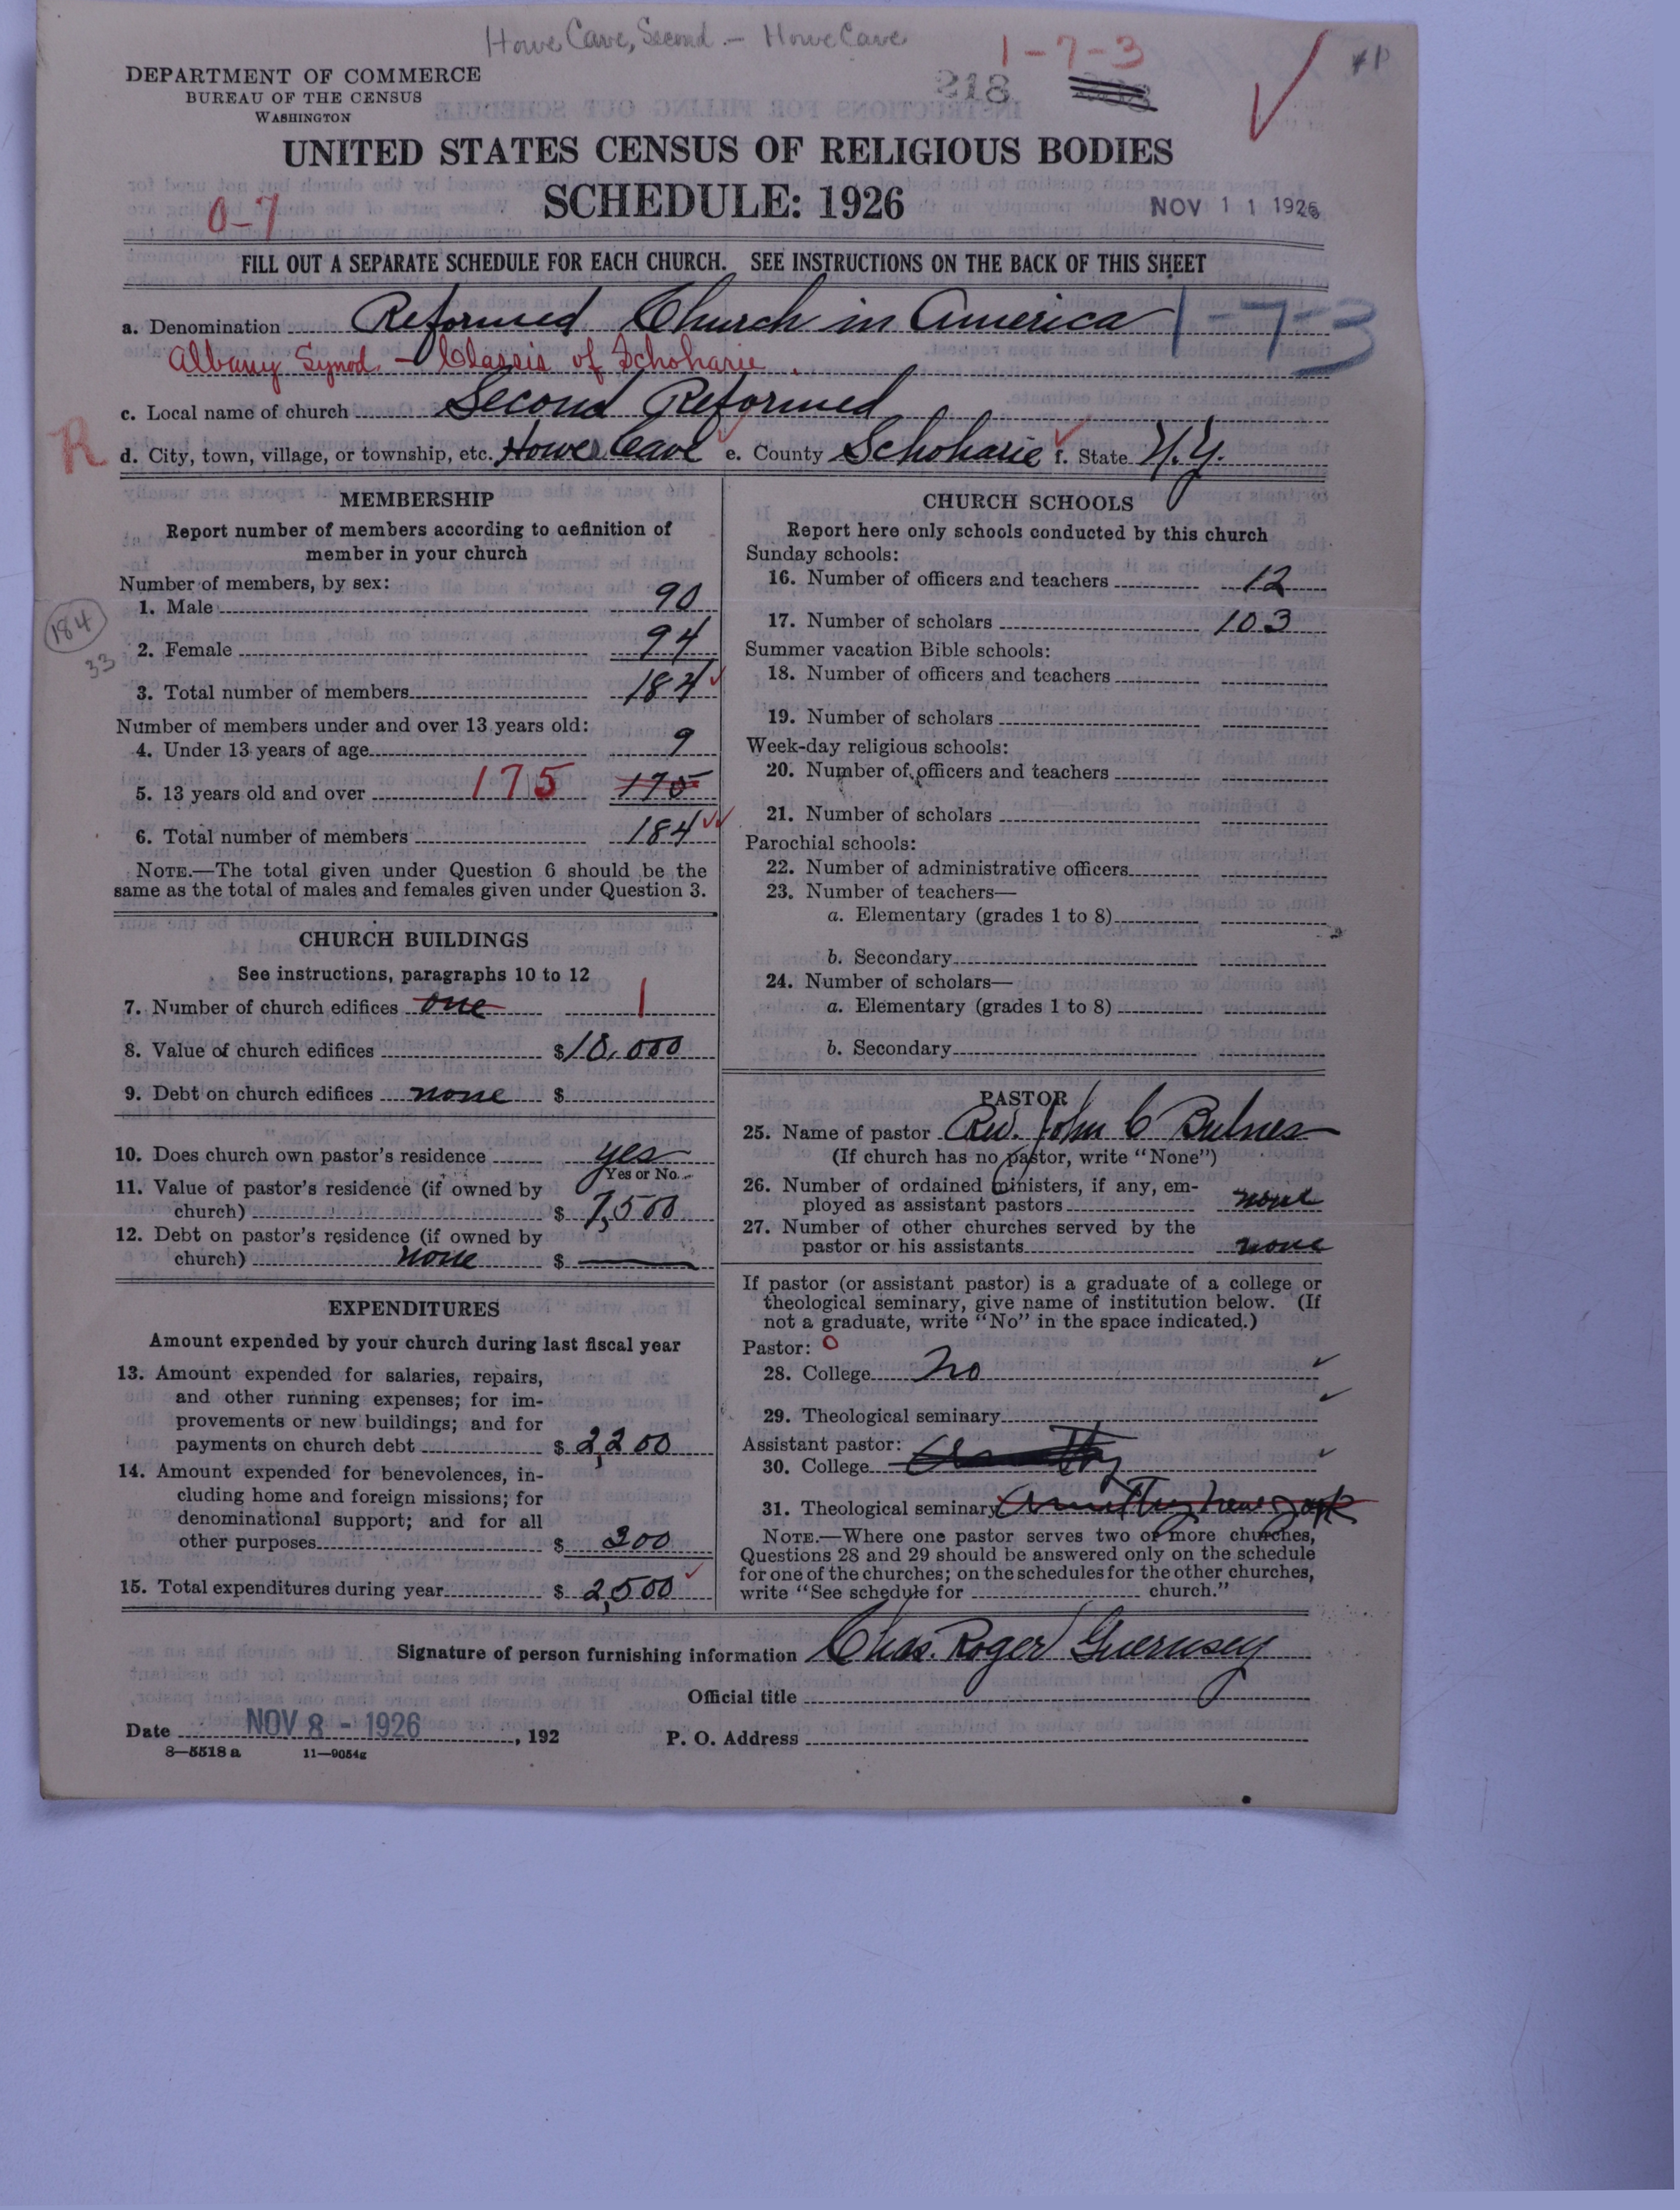 Howe Cave, Second. - Howe Cave
1-7-3
DEPARTMENT OF COMMERCE
BUREAU OF THE CENSUS
WASHINGTON
218
UNITED STATES CENSUS OF RELIGIOUS BODIES
SCHEDULE: 1926
0-7
NOV 11 1926
FILL OUT A SEPARATE SCHEDULE FOR EACH CHURCH. SEE INSTRUCTIONS ON THE BACK OF THIS SHEET
a. Denomination Reformed Church in America 1-7-3
Albany Synod. - Classis of Schoharie.
c. Local name of church Second Reformed
R
d. City, town, village, or township, etc. Howes Cave e. County Schoharie f. State N.Y.
MEMBERSHIP
Report number of members according to definition of
member in your church
Number of members, by sex:
1. Male 90
184
2. Female 94
33
3. Total number of members 184
Number of members under and over 13 years old:
4. Under 13 years of age 9
5. 13 years old and over 175 175
6. Total number of members 184
NOTE.—The total given under Question 6 should be the
same as the total of males and females given under Question 3.
CHURCH BUILDINGS
See instructions, paragraphs 10 to 12
7. Number of church edifices one 1
8. Value of church edifices $10,000
9. Debt on church edifices none $
10. Does church own pastor's residence yes
Yes or No
11. Value of pastor's residence (if owned by
church) $ 7,500
12. Debt on pastor's residence (if owned by
church) none $
EXPENDITURES
Amount expended by your church during last fiscal year
13. Amount expended for salaries, repairs,
and other running expenses; for im-
provements or new buildings; and for
payments on church debt $ 2,200
14. Amount expended for benevolences, in-
cluding home and foreign missions; for
denominational support; and for all
other purposes $ 300
15. Total expenditures during year $ 2,500
CHURCH SCHOOLS
Report here only schools conducted by this church
Sunday schools:
16. Number of officers and teachers 12
17. Number of scholars 103
Summer vacation Bible schools:
18. Number of officers and teachers
19. Number of scholars
Week-day religious schools:
20. Number of officers and teachers
21. Number of scholars
Parochial schools:
22. Number of administrative officers
23. Number of teachers—
a. Elementary (grades 1 to 8)
b. Secondary
24. Number of scholars—
a. Elementary (grades 1 to 8)
b. Secondary
PASTOR
25. Name of pastor Rev. John C Bulness
(If church has no pastor, write "None")
26. Number of ordained ministers, if any, em-
ployed as assistant pastors none
27. Number of other churches served by the
pastor or his assistants none
If pastor (or assistant pastor) is a graduate of a college or
theological seminary, give name of institution below. (If
not a graduate, write "No" in the space indicated.)
Pastor: 0
28. College No
29. Theological seminary
Assistant pastor:
30. College
31. Theological seminary
NOTE.—Where one pastor serves two or more churches,
Questions 28 and 29 should be answered only on the schedule
for one of the churches; on the schedules for the other churches,
write "See schedule for church."
Signature of person furnishing information Chas. Roger Guernsey
Official title
Date NOV 8 - 1926, 192
P. O. Address
8—5518 a 11—9054g